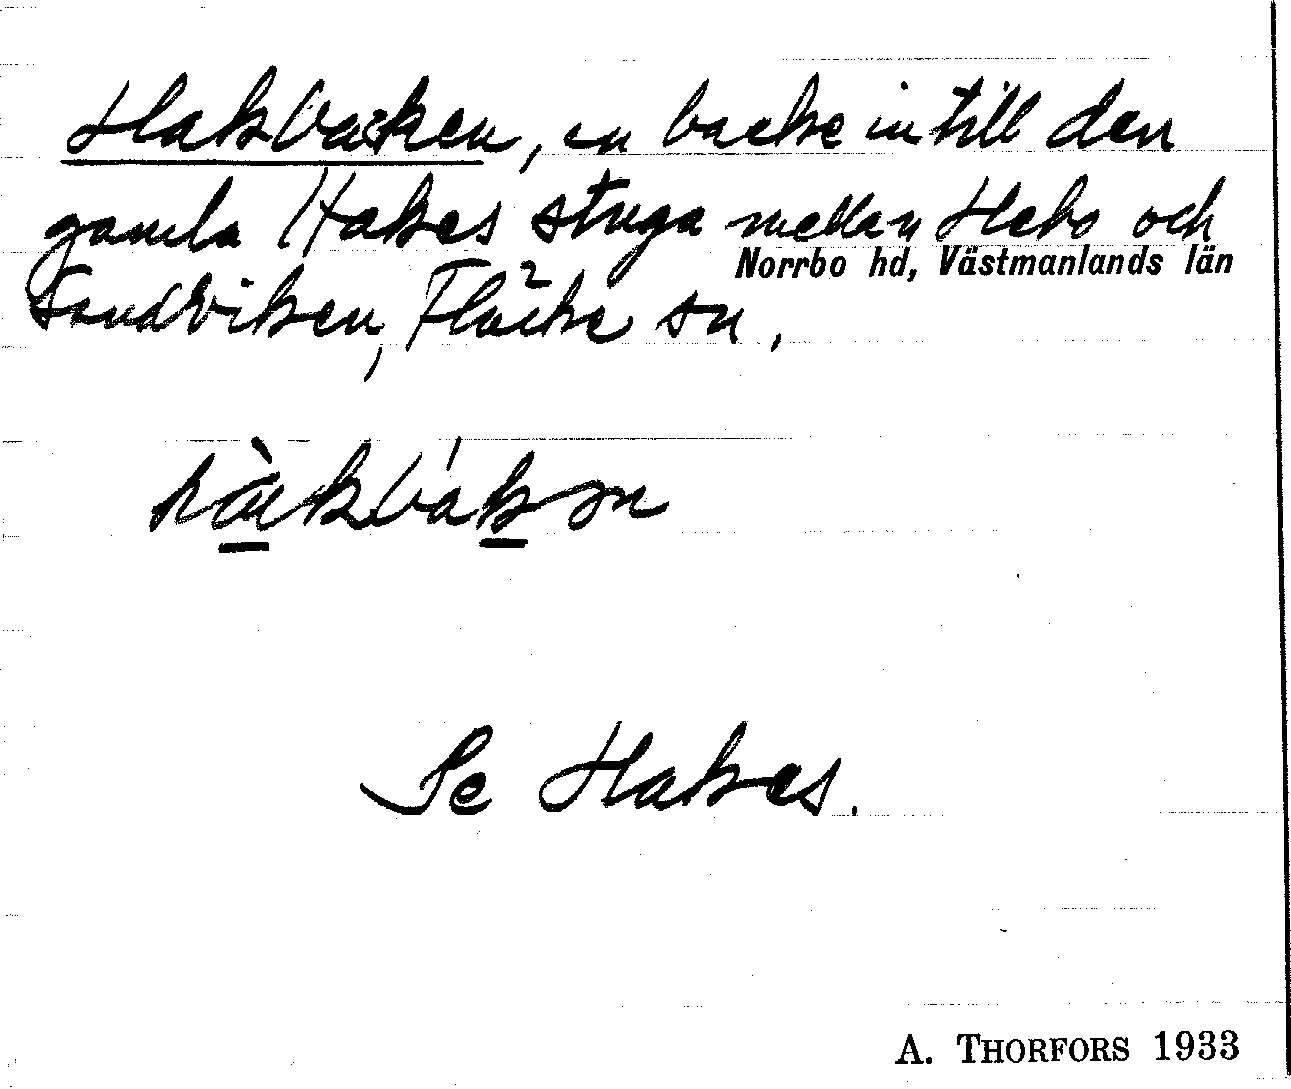 Hakbacken, en backe intill den
gamla Hakes stuga mellan Hebo och
Norrbo hd, Västmanlands län
Sandviken, Fläcke sn.
hàkbákən
Se Hakes.
A. THORFORS 1933